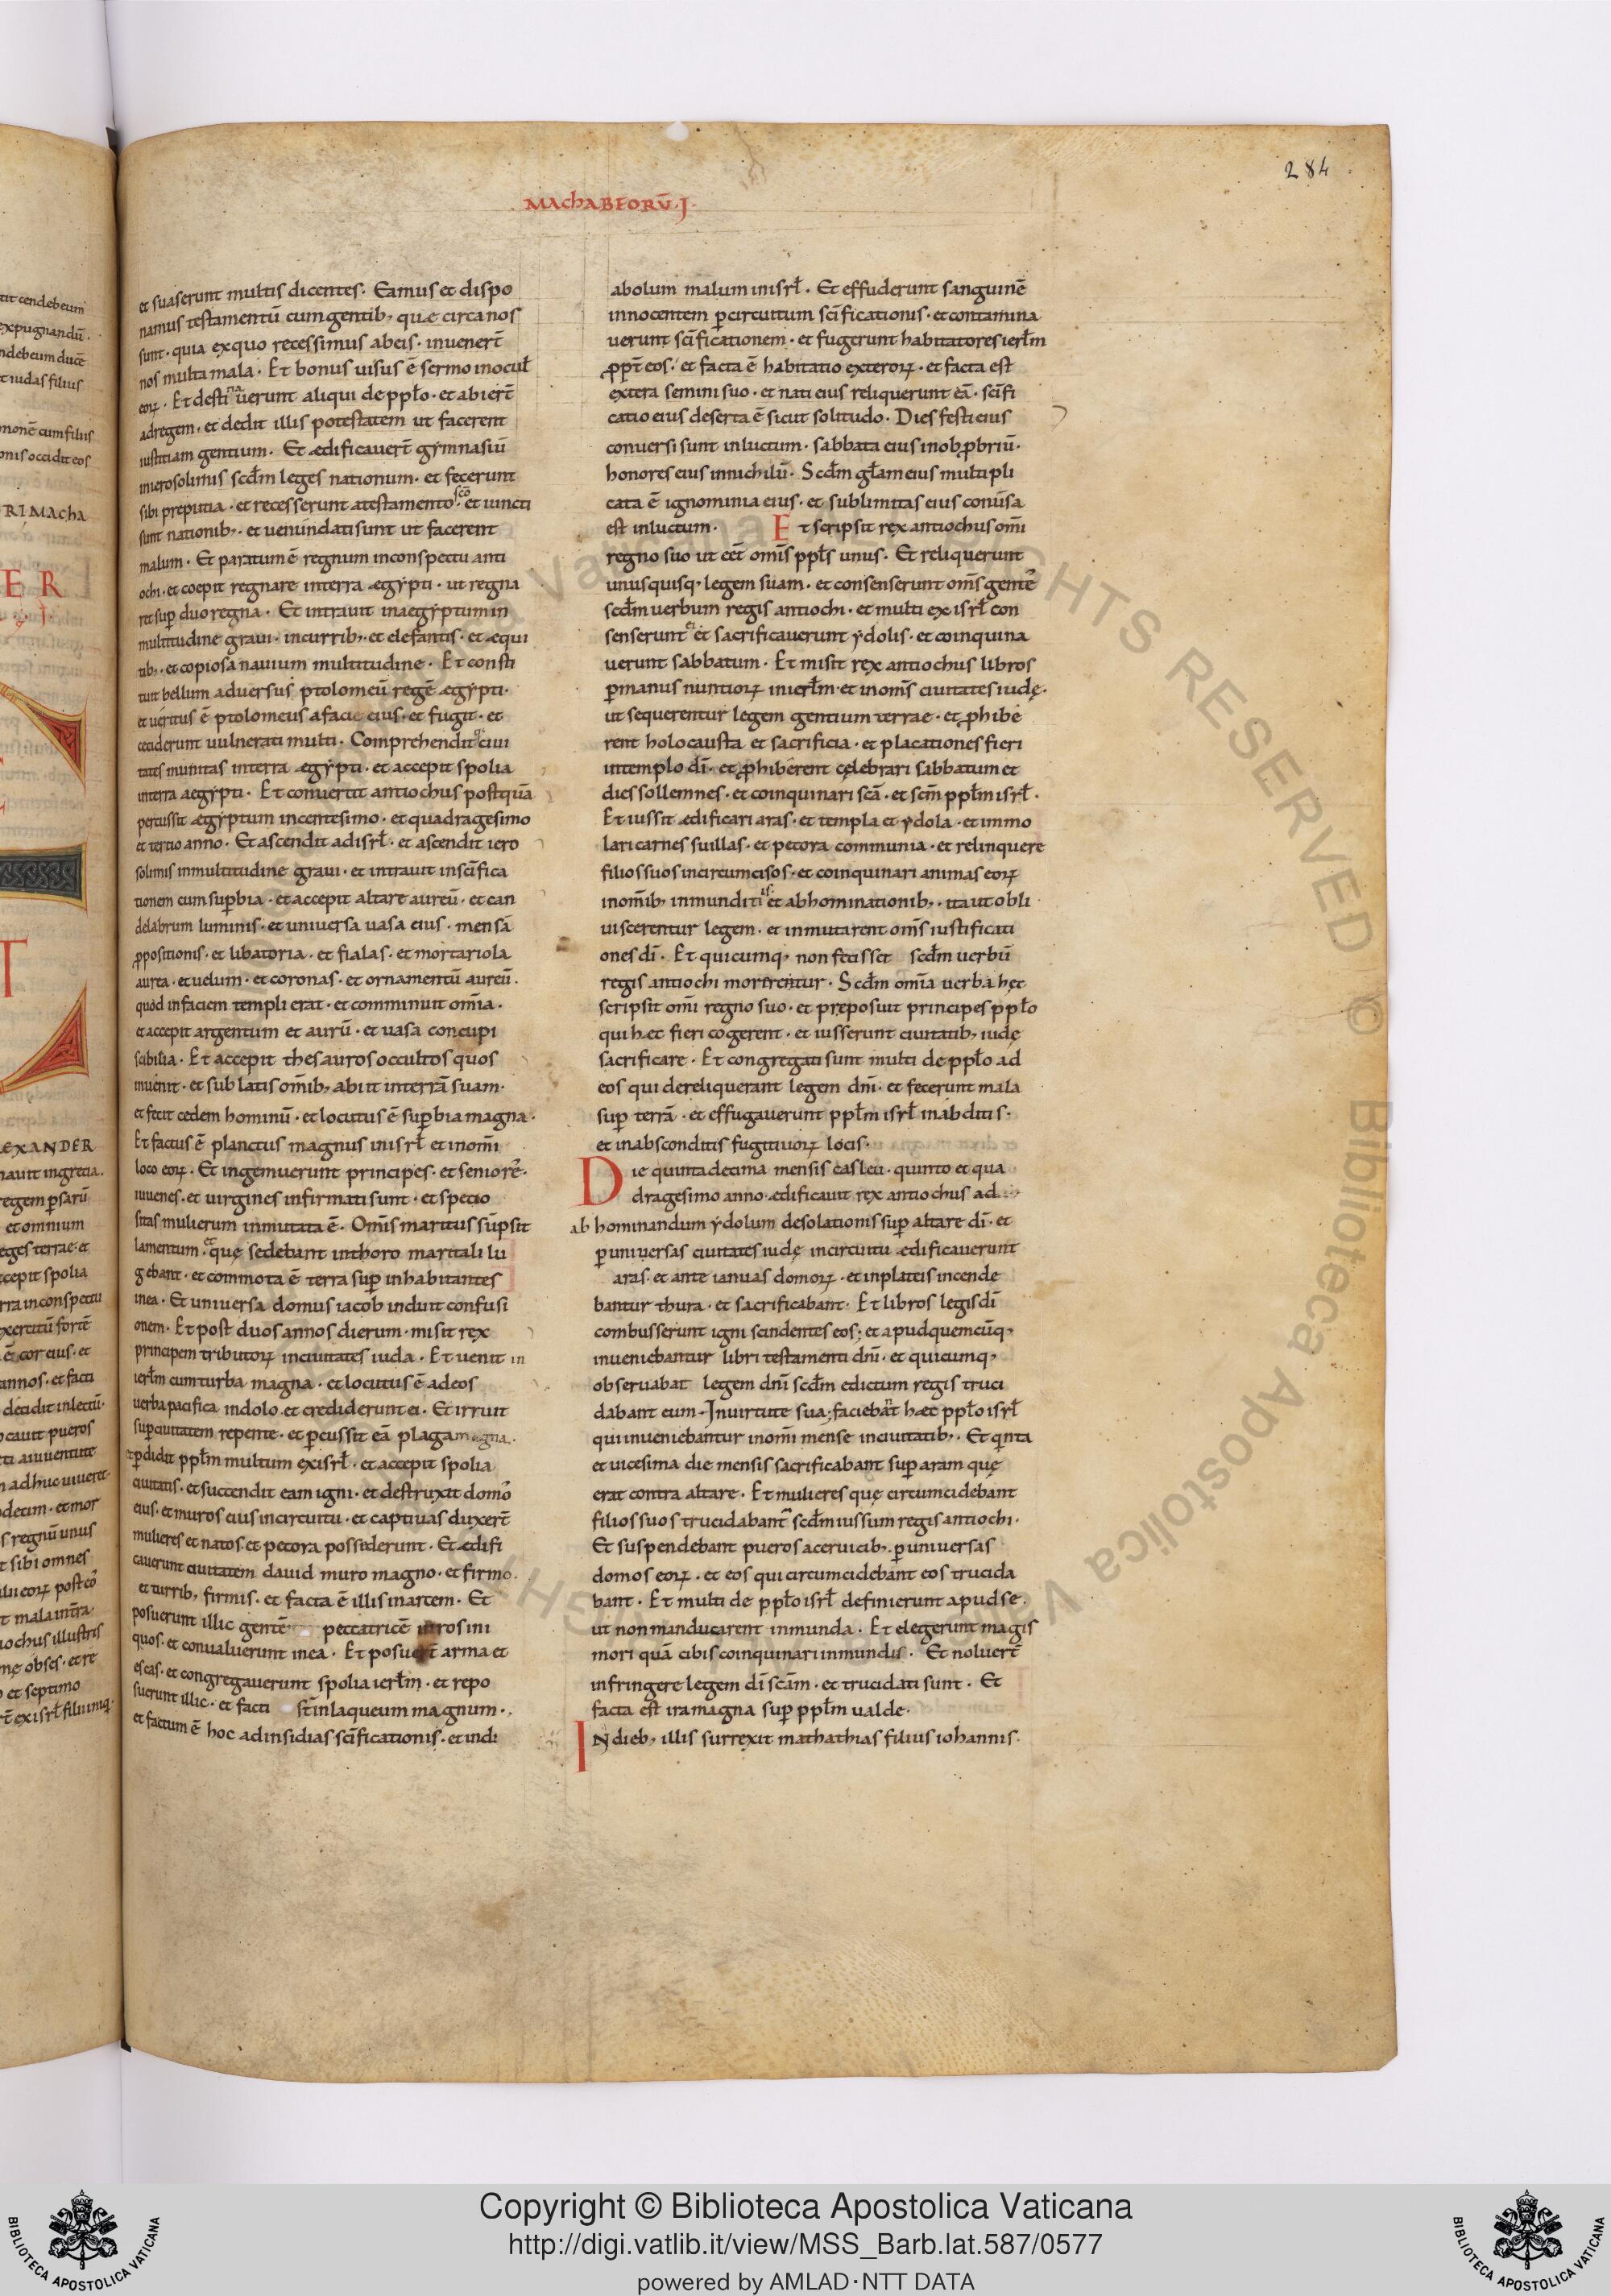 284
MAChABEORŪ · J ·
et suaserunt multis dicentes · Eamus et dispo
namus testamentū cum gentib; quae circa nos
sunt · quia exquo recessimus abeis · inuenerт̄
nos multa mala · Et bonus uisus ē sermo inocul̄
eoꝝ · Et destinauerunt aliqui de ppl̄o · et abierт̄
adregem · et dedit illis potestatem ut facerent
iustitiam gentium · Et ædificauerт̄ gẏmnasiū
inierosolimis scd̄m leges nationum · et fecerunt
sibi preputia · et recesserunt atestamento scō · et uincti
sunt nationib; · et uenundati sunt ut facerent
malum · Et paratum ē regnum inconspectu anti
ochi · et coepit regnare interra ægẏpti · ut regna
ret suꝑ duo regna · Et intrauit inaegẏptum in
multitudine graui · incurrib; · et elefantis · et æqui
tib; · et copiosa nauium multitudine · Et consti
tuit bellum aduersus ptolomeū regē ægẏpti ·
et ueritus ē ptolomeus afacie eius · et fugit · et
ceciderunt uulnerati multi · Comprehendit ciui
tates munitas interra ægẏpti · et accepit spolia
interra aegẏpti · Et conuertit antiochus postquā
percussit ægẏptum incentesimo · et quadragesimo
et tertio anno · Et ascendit adisrl̄ · et ascendit iero
solimis inmultitudine graui · et intrauit insc̄ifica
tionem cum suꝑbia · et accepit altare aureū · et can
delabrum luminis · et uniuersa uasa eius · mensā
ꝓpositionis · et libatoria · et fialas · et mortariola
aurea · et uelum · et coronas · et ornamentū aureū ·
quod infaciem templi erat · et comminuit om̄ia ·
et accepit argentum et aurū · et uasa concupi
scibilia · Et accepit thesauros occultos quos
inuenit · et sublatis om̄ib; abiit interrā suam ·
et fecit cedem hominū · et locutus ē suꝑbia magna ·
Et factus ē planctus magnus inisrl̄ et inom̄i
loco eoꝝ · Et ingemuerunt principes · et seniore᷒ ·
iuuenes · et uirgines infirmati sunt · et specio
sitas mulierum inmutata ē · Om̄is maritus sūpsit
lamentum · et quę sedebant inthoro maritali lu
gebant · et commota ē terra suꝑ inhabitantes
inea · Et uniuersa domus iacob induit confusi
onem · Et post duos annos dierum · misit rex
principem tributoꝝ inciuitates iuda · Et uenit in
ierl̄m cum turba magna · et locutus ē adeos
uerba pacifica indolo · et crediderunt ei · Et irruit
suꝑ ciuitatem repente · et ꝑcussit eā plaga magna ·
et ꝑdidit ppl̄m multum exisrl̄ · et accepit spolia
ciuitatis · et succendit eam igni · et destruxit domo᷒
eius · et muros eius incircuitu · et captiuas duxerт̄
mulieres et natos · et pecora possederunt · Et ædifi
cauerunt ciuitatem dauid muro magno · et firmo ·
et turrib; firmis · et facta ē illis inartem · Et
posuerunt illic gentē peccatricē uiros ini
quos · et conualuerunt inea · Et posuerт̄ arma et
escas · et congregauerunt spolia ierl̄m · et repo
suerunt illic · et facti st̄ inlaqueum magnum ·
et factum ē hoc adinsidias sc̄ificationis · et indi
abolum malum inisrl̄ · Et effuderunt sanguinē
innocentem ꝑcircuitum sc̄ificationis · et contamina
uerunt sc̄ificationem · et fugerunt habitatores ierl̄m
ꝓpт̄ eos · et facta ē habitatio exteroꝝ · et facta est
extera semini suo · et nati eius reliquerunt eā · sc̄ifi
catio eius deserta ē sicut solitudo · Dies festi eius
conuersi sunt inluctum · sabbata eius inobꝓbriū ·
honores eius innichilū · Scd̄m gl̄am eius multipli
cata ē ignominia eius · et sublimitas eius conūsa
est inluctum · Et scripsit rex antiochus om̄i
regno suo ut eēт̄ om̄is ppl̄s unus · Et reliquerunt
unusquisq; legem suam · et consenserunt om̄s gente᷒
scd̄m uerbum regis antiochi · et multi ex isrl̄ con
senserunt ei et sacrificauerunt ẏdolis · et coinquina
uerunt sabbatum · Et misit rex antiochus libros
ꝑmanus nuntioꝝ inierl̄m · et inom̄s ciuitates iudę ·
ut sequerentur legem gentium terrae · et ꝓhibe
rent holocausta et sacrificia · et placationes fieri
intemplo dī · et ꝓhiberent cęlebrari sabbatum et
dies sollemnes · et coinquinari scā · et scm̄ ppl̄m isrl̄ ·
Et iussit ædificari aras · et templa et ẏdola · et immo
lari carnes suillas · et pecora communia · et relinquere
filios suos incircumcisos · et coinquinari animas eoꝝ
inom̄ib; inmunditiis · et abhominationib; · ita ut obli
uiscerentur legem · et inmutarent om̄s iustificati
ones dī · Et quicumq; non fecisset scd̄m uerbū
regis antiochi morerentur · Scd̄m om̄ia uerba hęc
scripsit om̄i regno suo · et pręposuit principes ppl̄o
qui hæc fieri cogerent · et iusserunt ciuitatib; iudę
sacrificare · Et congregati sunt multi de ppl̄o ad
eos qui dereliquerant legem dn̄i · et fecerunt mala
suꝑ terrā · et effugauerunt ppl̄m isrl̄ inabditis ·
et inabsconditis fugitiuoꝝ locis ·
Die quintadecima mensis casleu · quinto et qua
dragesimo anno · ædificauit rex antiochus ad
abhominandum ẏdolum desolationis suꝑ altare dī · et
ꝑuniuersas ciuitates iudę incircuitu ædificauerunt
aras · et ante ianuas domoꝝ · et inplateis incende
bantur thura · et sacrificabant · Et libros legis dī
combusserunt igni scindentes eos · et apudquemcūq;
inueniebantur libri testamenti dn̄i · et quicumq;
obseruabat legem dn̄i scd̄m edictum regis truci
dabant eum · Inuirtute sua faciebant hæc ppl̄o isrl̄
qui inueniebantur inom̄i mense inciuitatib; · Et qinta
et uicesima die mensis sacrificabant suꝑ aram quę
erat contra altare · Et mulieres quę circumcidebant
filios suos trucidabant᷑ scd̄m iussum regis antiochi ·
Et suspendebant pueros aceruicib; · ꝑuniuersas
domos eoꝝ · et eos qui circumcidebant eos trucida
bant · Et multi de ppl̄o isrl̄ definierunt apud se ·
ut non manducarent inmunda · Et elegerunt magis
mori quā cibis coinquinari inmundis · Et noluerт̄
infringere legem dī scām · et trucidati sunt · Et
facta est ira magna suꝑ ppl̄m ualde ·
INdieb; illis surrexit mathathias filius iohannis ·
Copyright © Biblioteca Apostolica Vaticana
http://digi.vatlib.it/view/MSS_Barb.lat.587/0577
powered by AMLAD · NTT DATA
BIBLIOTECA APOSTOLICA VATICANA
BIBLIOTECA APOSTOLICA VATICANA